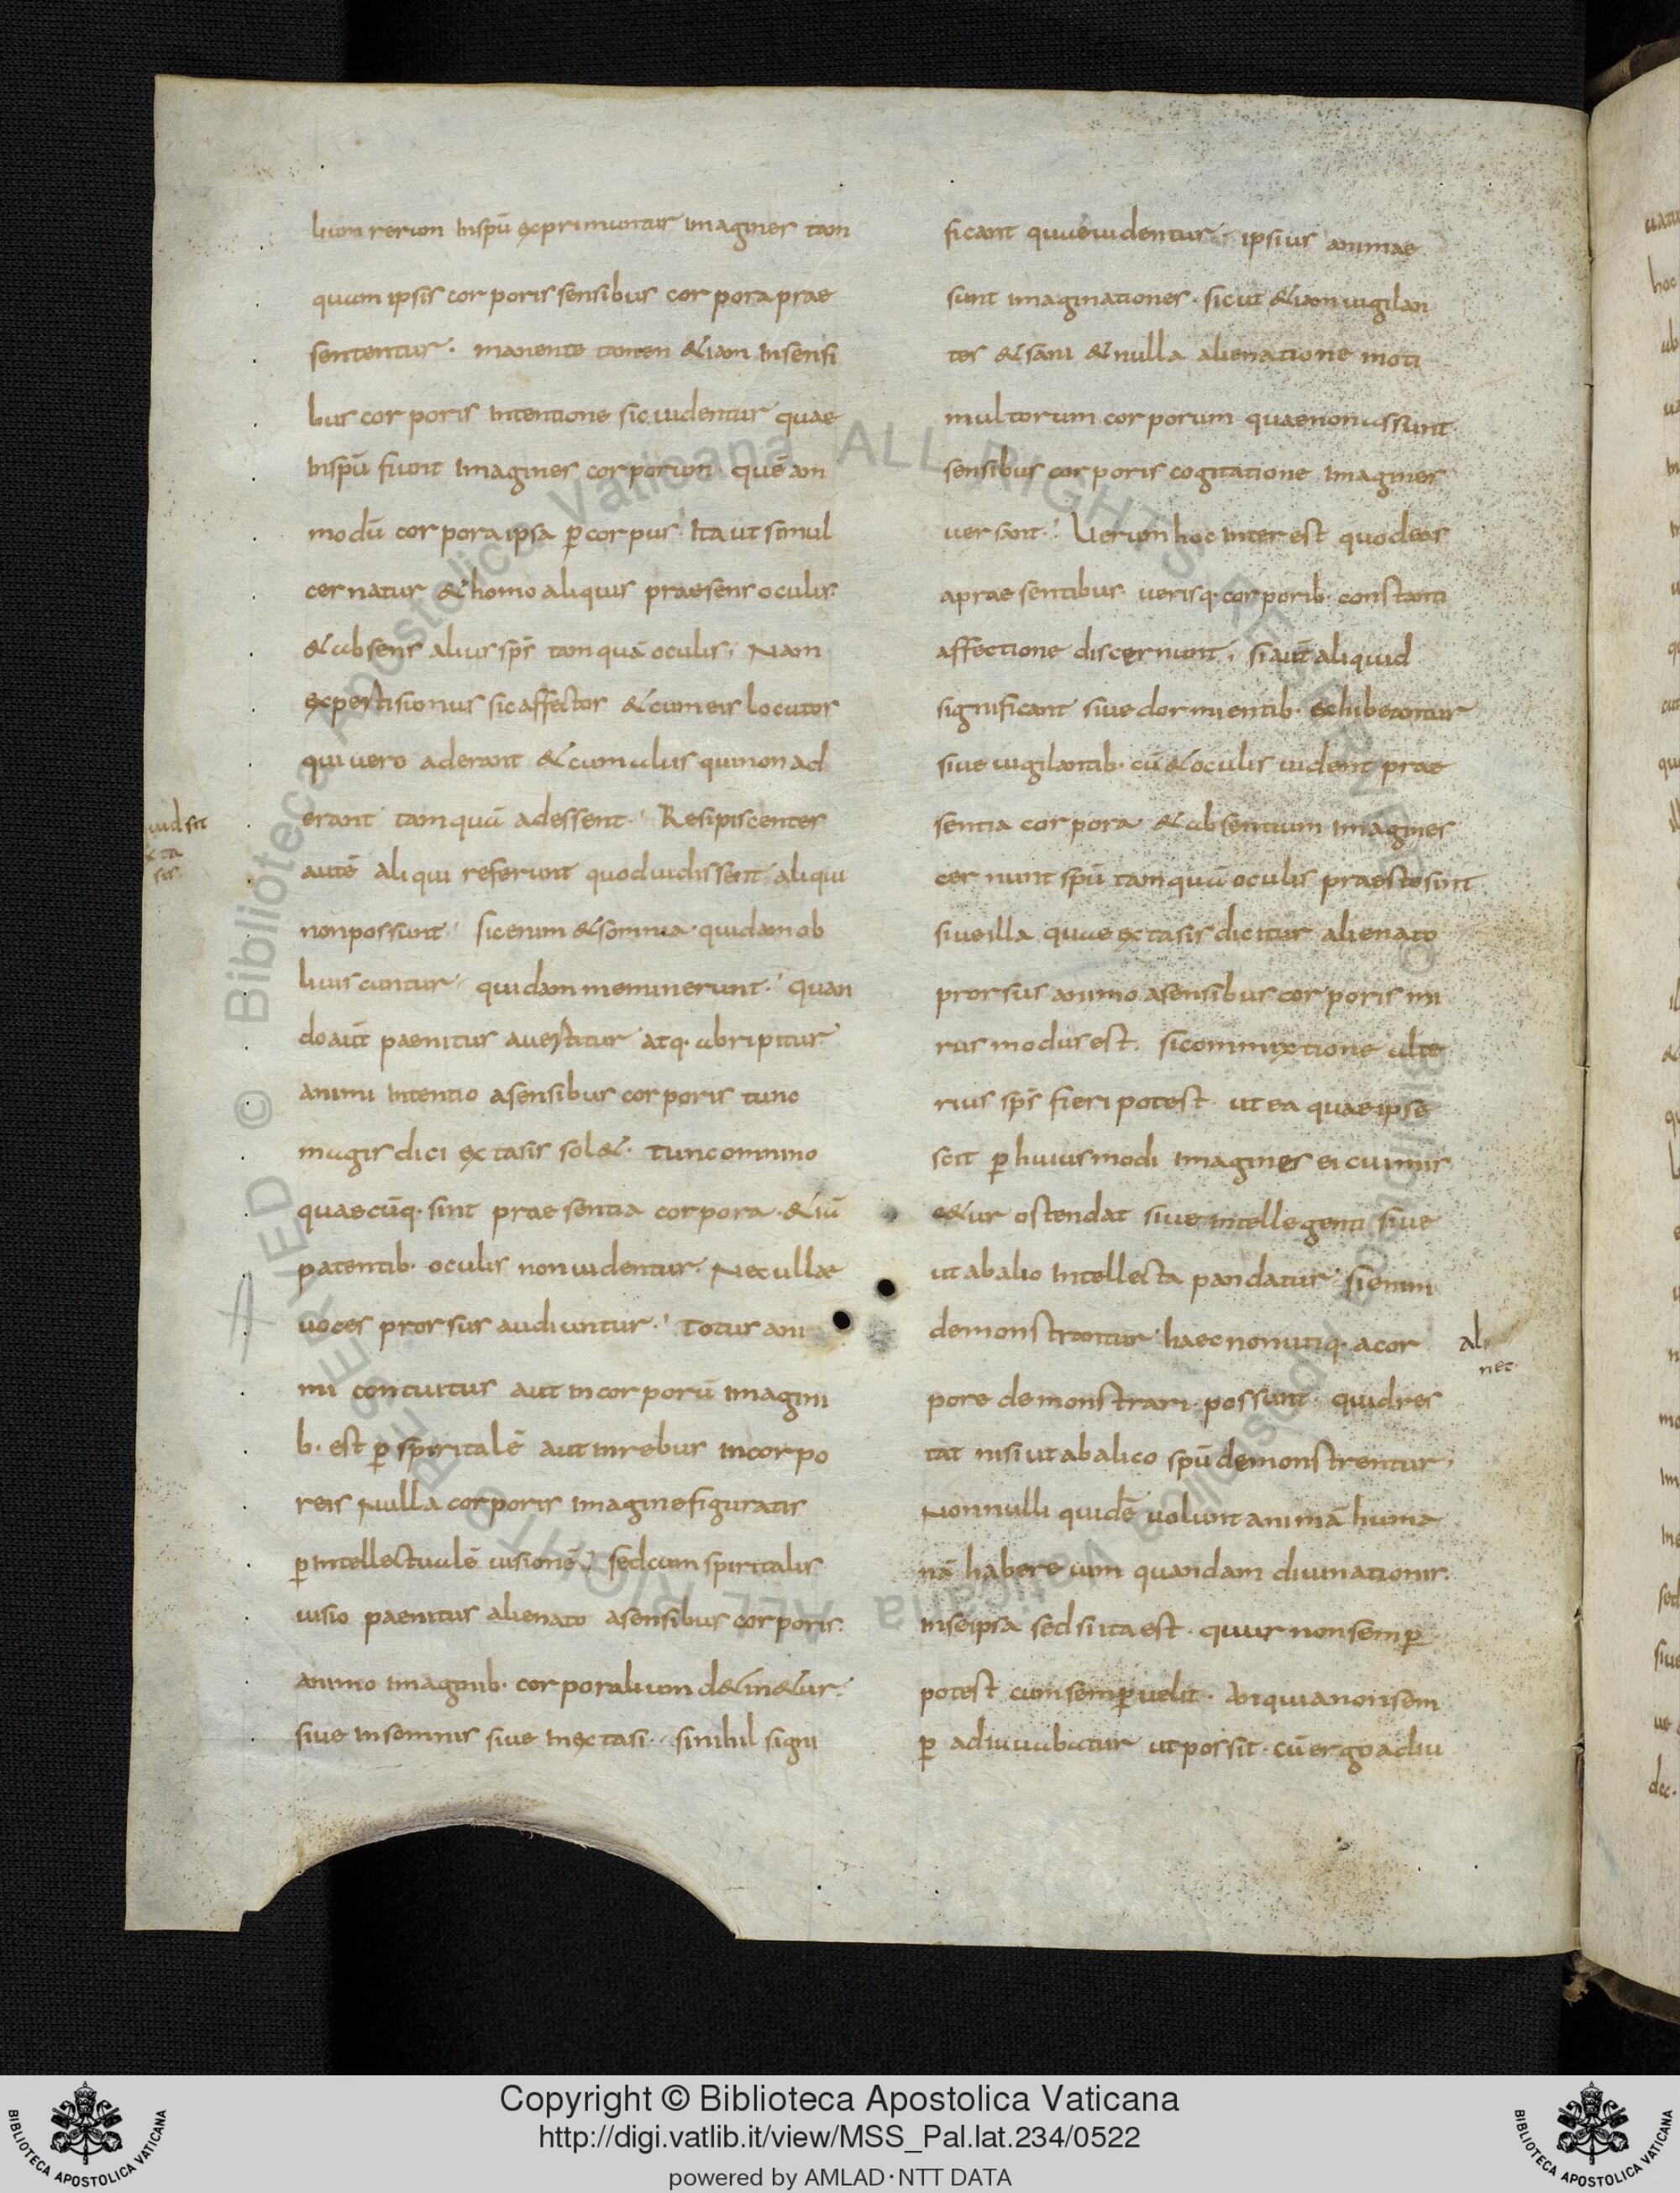 lium rerum inspū exprimuntur imagines tam
quam ipsis corporis sensibus corpora prae
sententur. manente tamen &iam insensi
bus corporis intentione sic uidentur quae
inspū fiunt imagines corporum quēam
modū corpora ipsa p̱ corpus Ita ut simul
cernatur & homo aliquis praesens oculis
& absens alius sp̄s tamquā oculis, Nam
expertisumus sic affector & cum eis locutos
qui uero aderant & cum aliis qui non ad
erant tamquā adessent. Resipiscentes
autē aliqui referunt quod uidissent aliqui
non possunt sic enim & somnia quidam ob
liuiscuntur quidam meminerunt. quan
do aūt paenitus auertitur atq. abripitur
animi intentio asensibus corporis tunc
magis dici extasis sol&. tunc omnino
quaecūq. sint praesentia corpora &iā
patentib. oculis non uidentur. Nec ullae
uoces prorsus audiuntur. Totus ani
mi contuitus aut in corporū imagini
b. est p̱ spiritalē aut in rebus incorpo
reis Nulla corporis imagine figuratis
p̱ intellectualē uisionē, sed cum spiritalis
uisio paenitus alienato asensibus corporis
animo imaginib. corporalium d&in&ur
siue in somnis siue in extasi. si nihil signi
uid sit
xta
sis
ficant quae uidentur ipsius animae
sunt imaginationes. sicut &iam uigilan
tes & sani & nulla alienatione moti
multorum corporum quae non assunt
sensibus corporis cogitatione imagines
uersant. Uerum hoc interest quod eas
a praesentibus uerisq. corporib. constanti
affectione discernunt, si aūt aliquid
significant siue dormientib. exhibeantur
siue uigilantib. cū & oculis uident prae
sentia corpora & absentium imagines
cernunt spū tamquā oculis praesto sint
siue illa quae extasis dicitur alienato
prorsus animo asensibus corporis mi
rus modus est. si commixtione alte
rius sp̄s fieri potest ut ea quae ipse
scit p̱ huiusmodi imagines ei cui mis
c&ur ostendat siue intellegenti siue
ut abalio intellecta pandatur si enim
demonstrantur haec non utiq. acor
pore demonstrari possunt quid res
tat nisi ut abalico spū demonstrentur,
Nonnulli quidē uolunt animā huma
nā habere uim quandam diuinationis
inseipsa sed si ita est. quur non semp̱
potest cum semp̱ uelit. An quia non sem
p̱ adiuuabatur ut possit. cū ergo adiu
al
nec
Copyright © Biblioteca Apostolica Vaticana
http://digi.vatlib.it/view/MSS_Pal.lat.234/0522
powered by AMLAD·NTT DATA